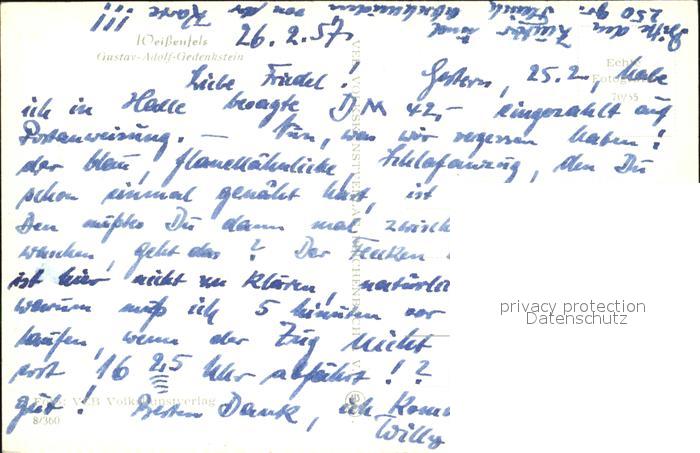 Bitte den Zucker und
250 gr.
von der Karte
!!!
Weißenfels
Gustav-Adolf-Gedenkstein
26.2.57
Echte
70/55
Liebe Friedel! Gestern, 25.2., habe
ich in Halle besagte DM 42,- eingezahlt auf
Postanweisung. — Nun, was wir vergessen haben!
der blau, flanellähnliche Schlafanzug, den Du
schon einmal genäht hast, ist
Den müßtes Du dann mal zwisch
waschen, geht das? Der Flecken
ist hier nicht zu klären, natürli
warum muß ich 5 Minuten vor
laufen, wenn der Zug nicht
erst 16 25 Uhr abfährt!?
gut! Besten Dank, ich Kom
Willy
VEB Volkskunstverlag
8/360
VEB VOLKSKUNSTVERLAG REICHENBACH
privacy protection
Datenschutz